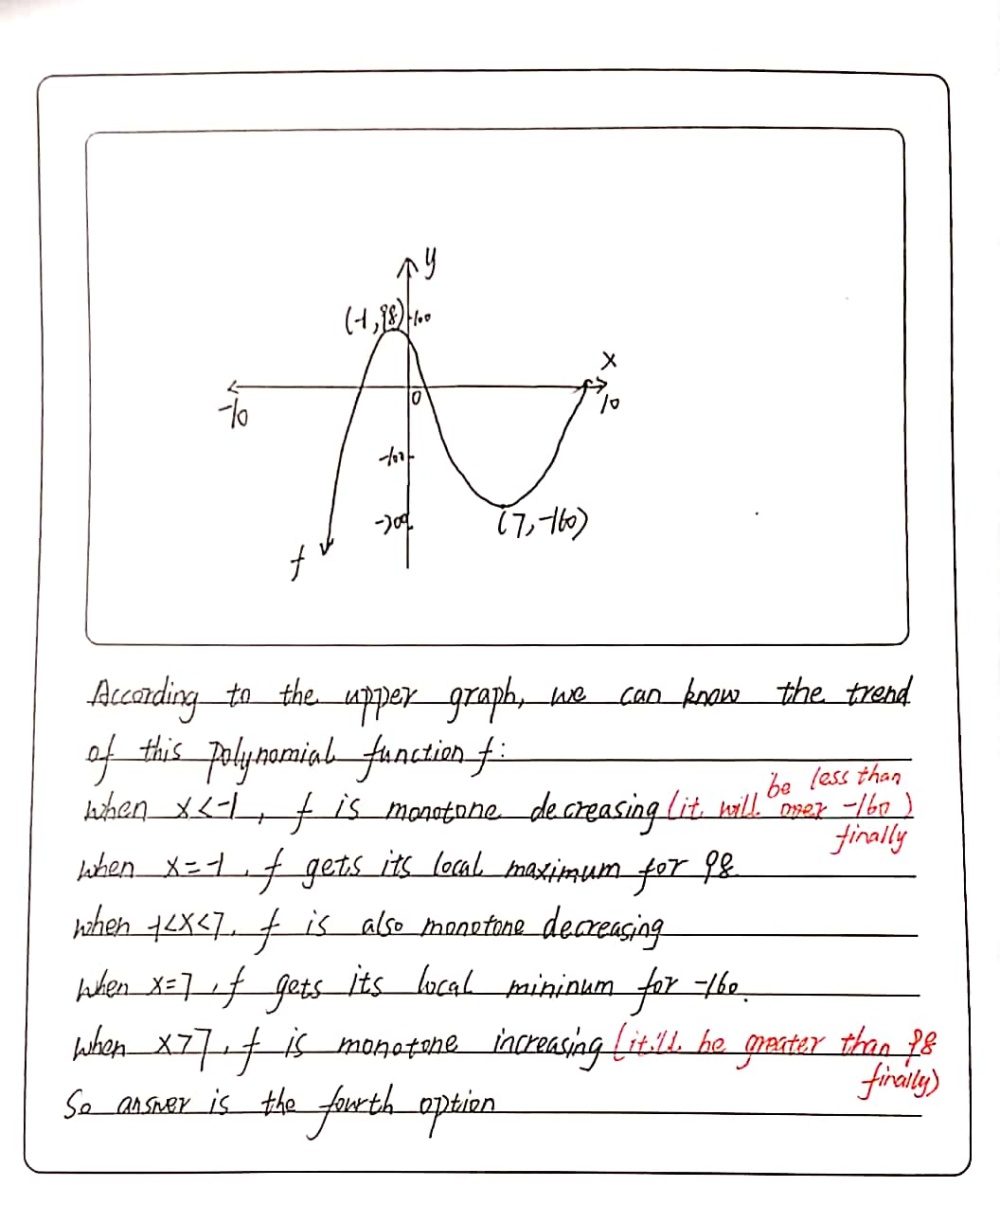 y
(-1,98)
100
x
-10
0
10
-100
-200
(7,-160)
f
According to the upper graph, we can know the trend
of this polynomial function f:
be less than
when x<-1, f is monotone decreasing (it will over -160)
finally
when x=-1, f gets its local maximum for 98
when -1<x<7, f is also monotone decreasing
when x=7, f gets its local mininum for -160.
when x>7, f is monotone increasing (it'll be greater than 98
finally)
So answer is the fourth option